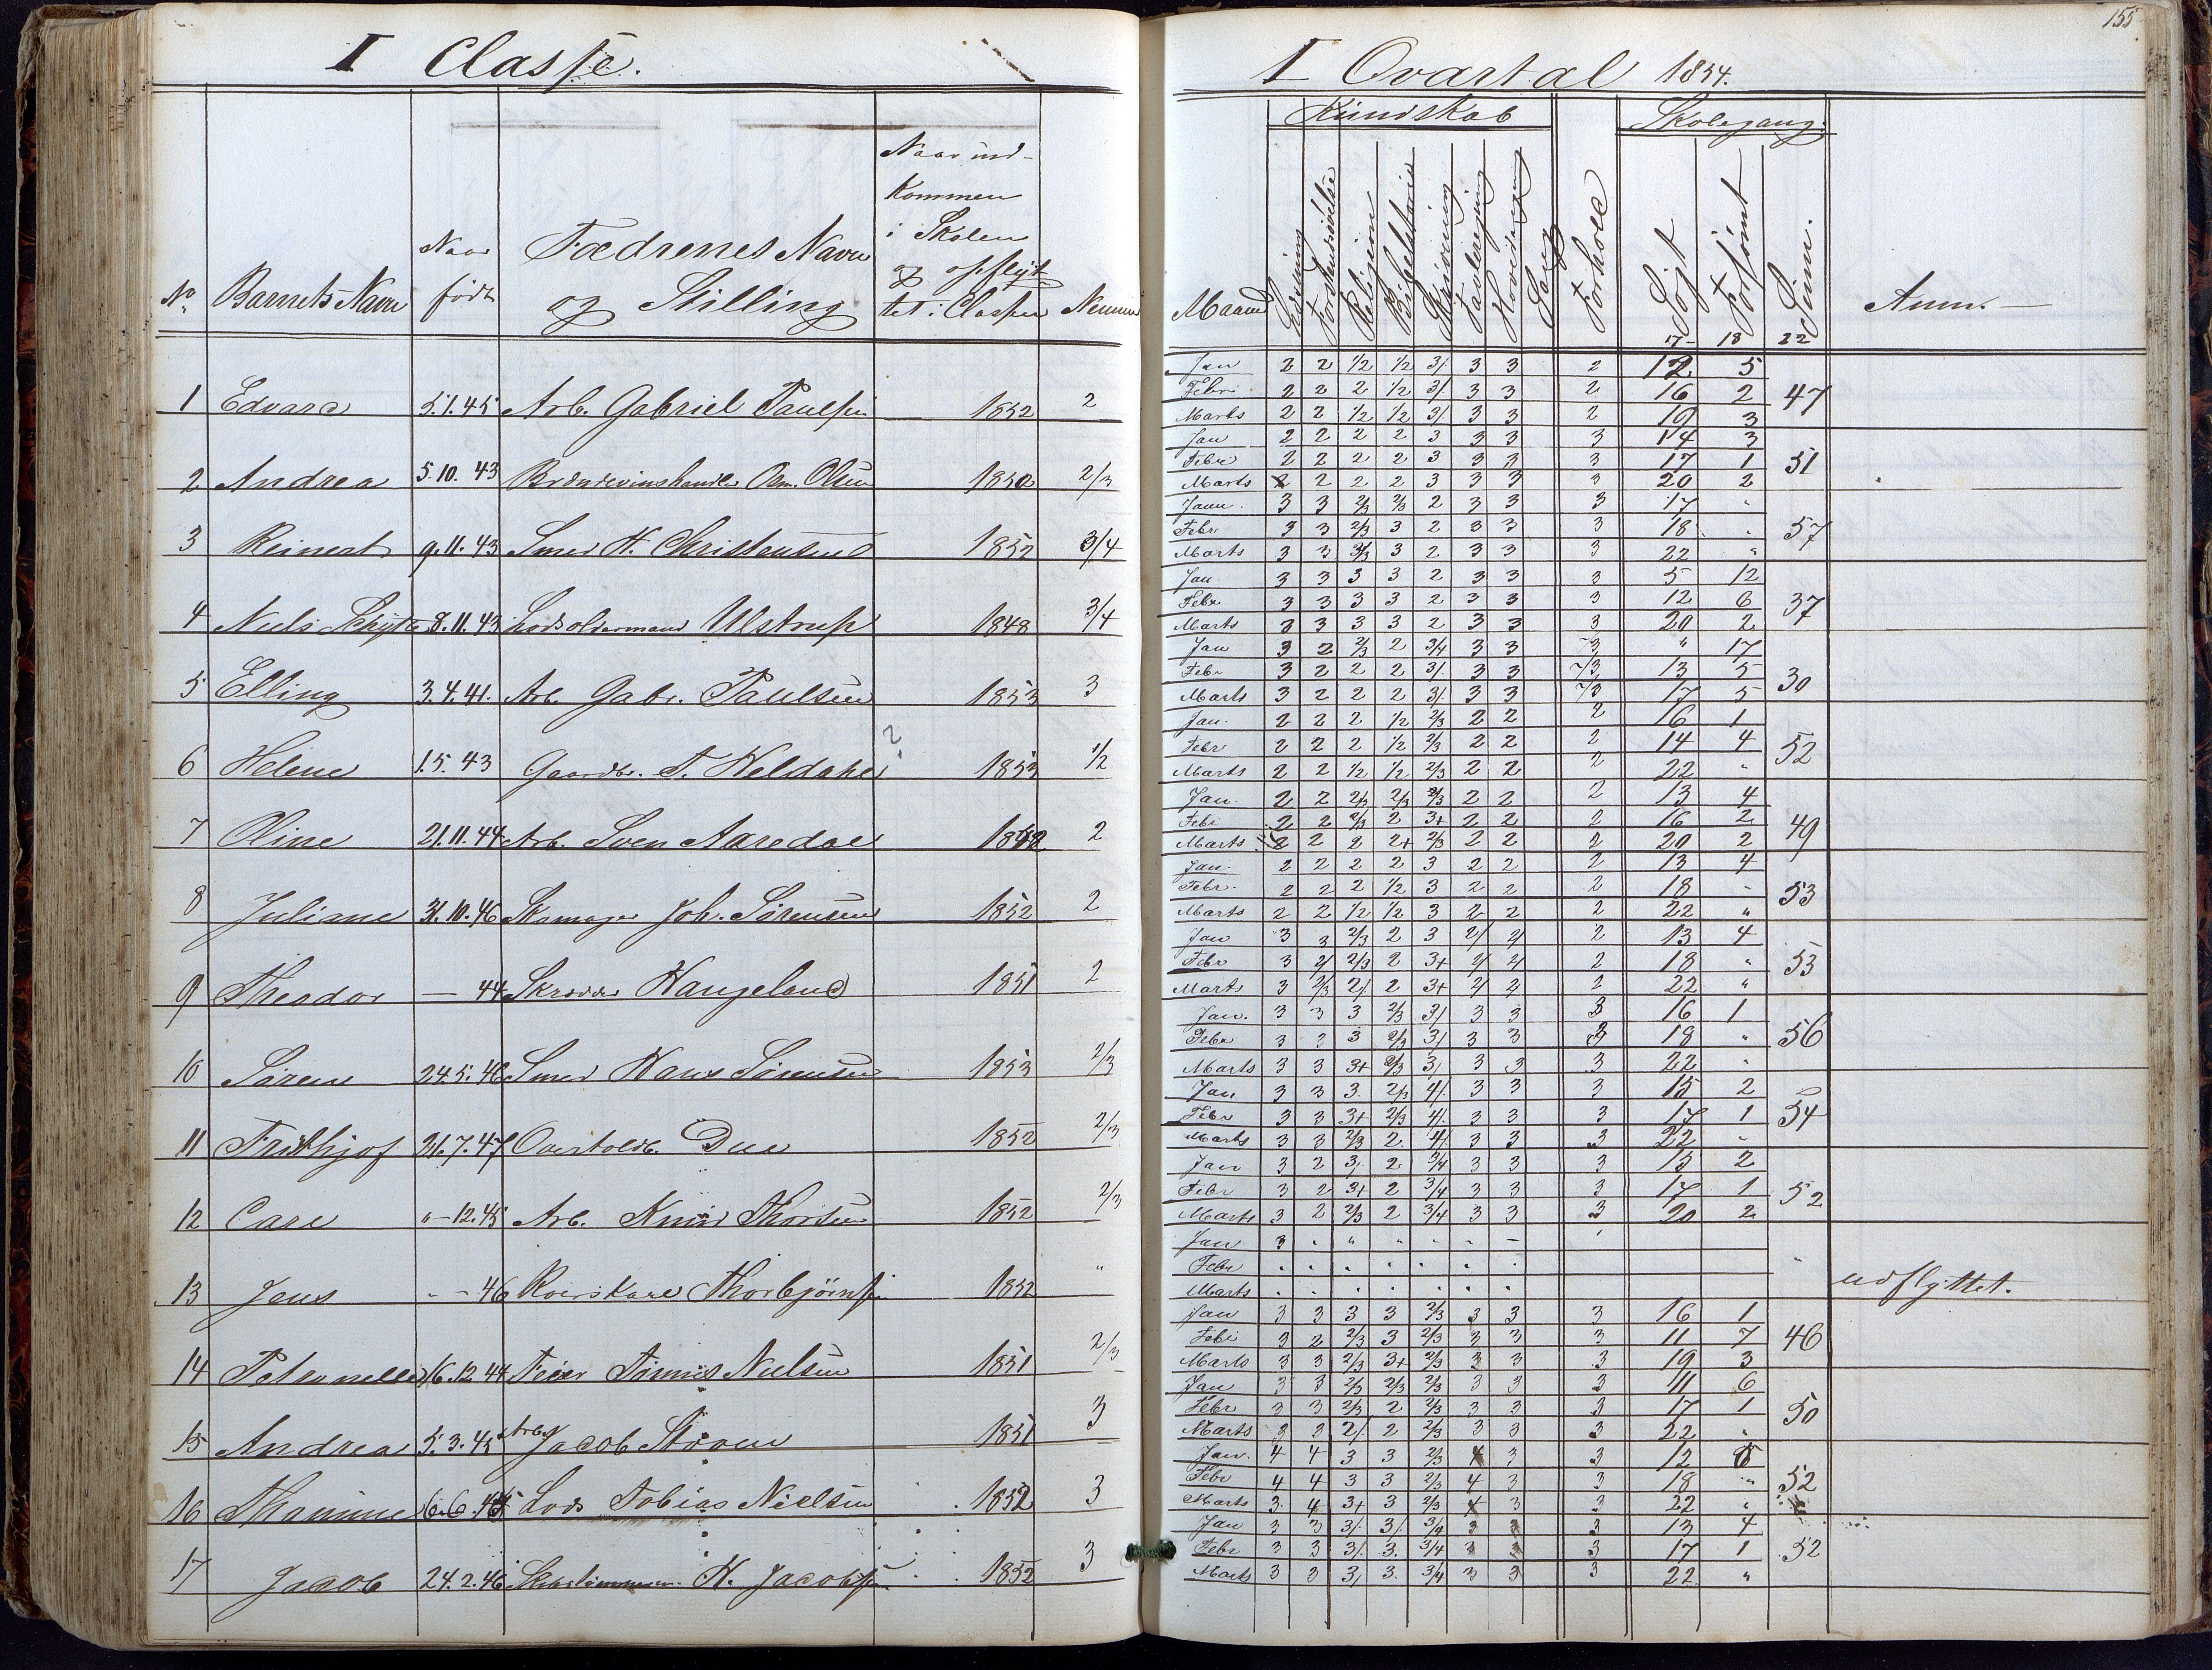 I Classe.
No
Barnets Navn
Naar
født
Fædrenes Navn
og Stilling
Naar ind-
kommen
i Skolen
og opflyt-
tet i Classen
Nemme
1 Edvard 5.1.45 Arb. Gabriel Paulsen 1852 2
2 Andrea 5.10.43 Brændevinshandler Olsen 1850 2/3
3 Reinert 9.11.43 Smed H. Christensen 1852 3/4
4 Niels Schytte 8.11.43 Lodsoldermand Ulstrup 1848 3/4
5 Elling 3.4.41. Arb. Gabr. Paulsen 1853 3
6 Helene 1.5.43 Gaardbr. T. Heldahl ? 1853 1/2
7 Oline 21.11.44 Arb. Sven Aaredal 1848 2
8 Juliane 31.10.46 Skomager Joh. Sørensen 1852 2
9 Theodor — 44 Skrædder Haugeland 1851 2
10 Søren 24.5.46 Smed Hans Sørensen 1853 2/3
11 Frithjof 31.7.47 Overtoldb. Due 1852 2/3
12 Carl " - 12.45 Arb. Knud Thorsen 1852 2/3
13 Jens " - 46 Roerskarl Thorbjørnsen 1852 "
14 Petronelle 16.12.44 Feier Tønnes Nielsen 1851 2/3
15 Andrea 5.3.45 Arb. Jacob Steen 1851 3
16 Thamine 6.6.45 Lods Tobias Nielsen 1852 3
17 Jacob 24.2.46 H. Jacobsen 1852 3
155.
I Qvartal 1854.
Kundskab
Skolegang.
Maaned
Læsning
Forstandsøvelse
Religion
Bibelhistorie
Skrivning
Tavleregning
Hovedregning
Sang
Forhold
Søgt
Forsømt
Sum.
Anm.
17 18 22
Jan 2 2 1/2 1/2 3/. 3 3 2 12 5
Febr. 2 2 2 1/2 3/. 3 3 2 16 2 47
Marts 2 2 1/2 1/2 3/. 3 3 2 19 3
Jan 2 2 2 2 3 3 3 3 14 3
Febr 2 2 2 2 3 3 3 3 17 1 51
Marts 2 2 2 2 3 3 3 3 20 2
Janu. 3 3 2/3 2/3 2 3 3 3 17 "
Febr 3 3 2/3 3 2 3 3 3 18 " 57
Marts 3 3 2/3 3 2 3 3 3 22 "
Jan. 3 3 3 3 2 3 3 3 5 12
Febr 3 3 3 3 2 3 3 3 12 6 37
Marts 3 3 3 3 2 3 3 3 20 2
Jan 3 2 2/3 2 3/4 3 3 /3 " 17
Febr 3 2 2 2 3/. 3 3 /3 13 5 30
Marts 3 2 2 2 3/. 3 3 /3 17 5
Jan. 2 2 2 1/2 2/3 2 2 2 16 1
Febr 2 2 2 1/2 2/3 2 2 2 14 4 52
Marts 2 2 1/2 1/2 2/3 2 2 2 22 "
Jan. 2 2 2/3 2/3 2/3 2 2 2 13 4
Febr 2 2 2/3 2 3+ 2 2 2 16 2 49
Marts 2 2 2 2+ 2/3 2 2 2 20 2
Jan. 2 2 2 2 3 2 2 2 13 4
Febr. 2 2 2 1/2 3 2 2 2 18 - 53
Marts 2 2 1/2 1/2 3 2 2 2 22 "
Jan 3 3 2/3 2 3 2/ 2/ 2 13 4
Febr 3 2/ 2/3 2 3+ 2/ 2/ 2 18 " 53
Marts 3 2/3 2/. 2 3+ 2/ 2/ 2 22 "
Jan. 3 3 3 2/3 3/ 3 3 3 16 1
Febr 3 3 3 2/3 3/ 3 3 3 18 " 56
Marts 3 3 3+ 2/3 3/ 3 3 3 22 "
Jan 3 3 3. 2/3 4/. 3 3 3 15 2
Febr 3 3 3+ 2/3 4/. 3 3 3 17 1 54
Marts 3 3 2/3 2. 4/. 3 3 3 22 "
Jan 3 2 3/ 2 3/4 3 3 3 15 2
Febr 3 2 3+ 2 3/4 3 3 3 17 1 52
Marts 3 2 2/3 2 3/4 3 3 3 20 2
Jan 3 " " " " " –
Febr . . . . . . . "
Marts . . . . . . . udflyttet.
Jan 3 3 3 3 2/3 3 3 3 16 1
Febr 3 2 2/3 3 2/3 3 3 3 11 7 46
Marts 3 3 2/3 3+ 2/3 3 3 3 19 3
Jan 3 3 2/3 2/3 2/3 3 3 3 11 6
Febr 3 3 2/3 2 2/3 3 3 3 17 1 50
Marts 3 3 2/. 2 2/3 3 3 3 22 "
Jan. 4 4 3 3 2/3 4 3 3 12 5
Febr 4 4 3 3 2/3 4 3 3 18 " 52
Marts 3. 4 3+ 3 2/3 4 3 3 22 "
Jan 3 3 3/. 3/. 3/4 3 3 3 13 4
Febr 3 3 3/. 3. 3/4 3 3 3 17 1 52
Marts 3 3 3/ 3. 3/4 3 3 3 22 "